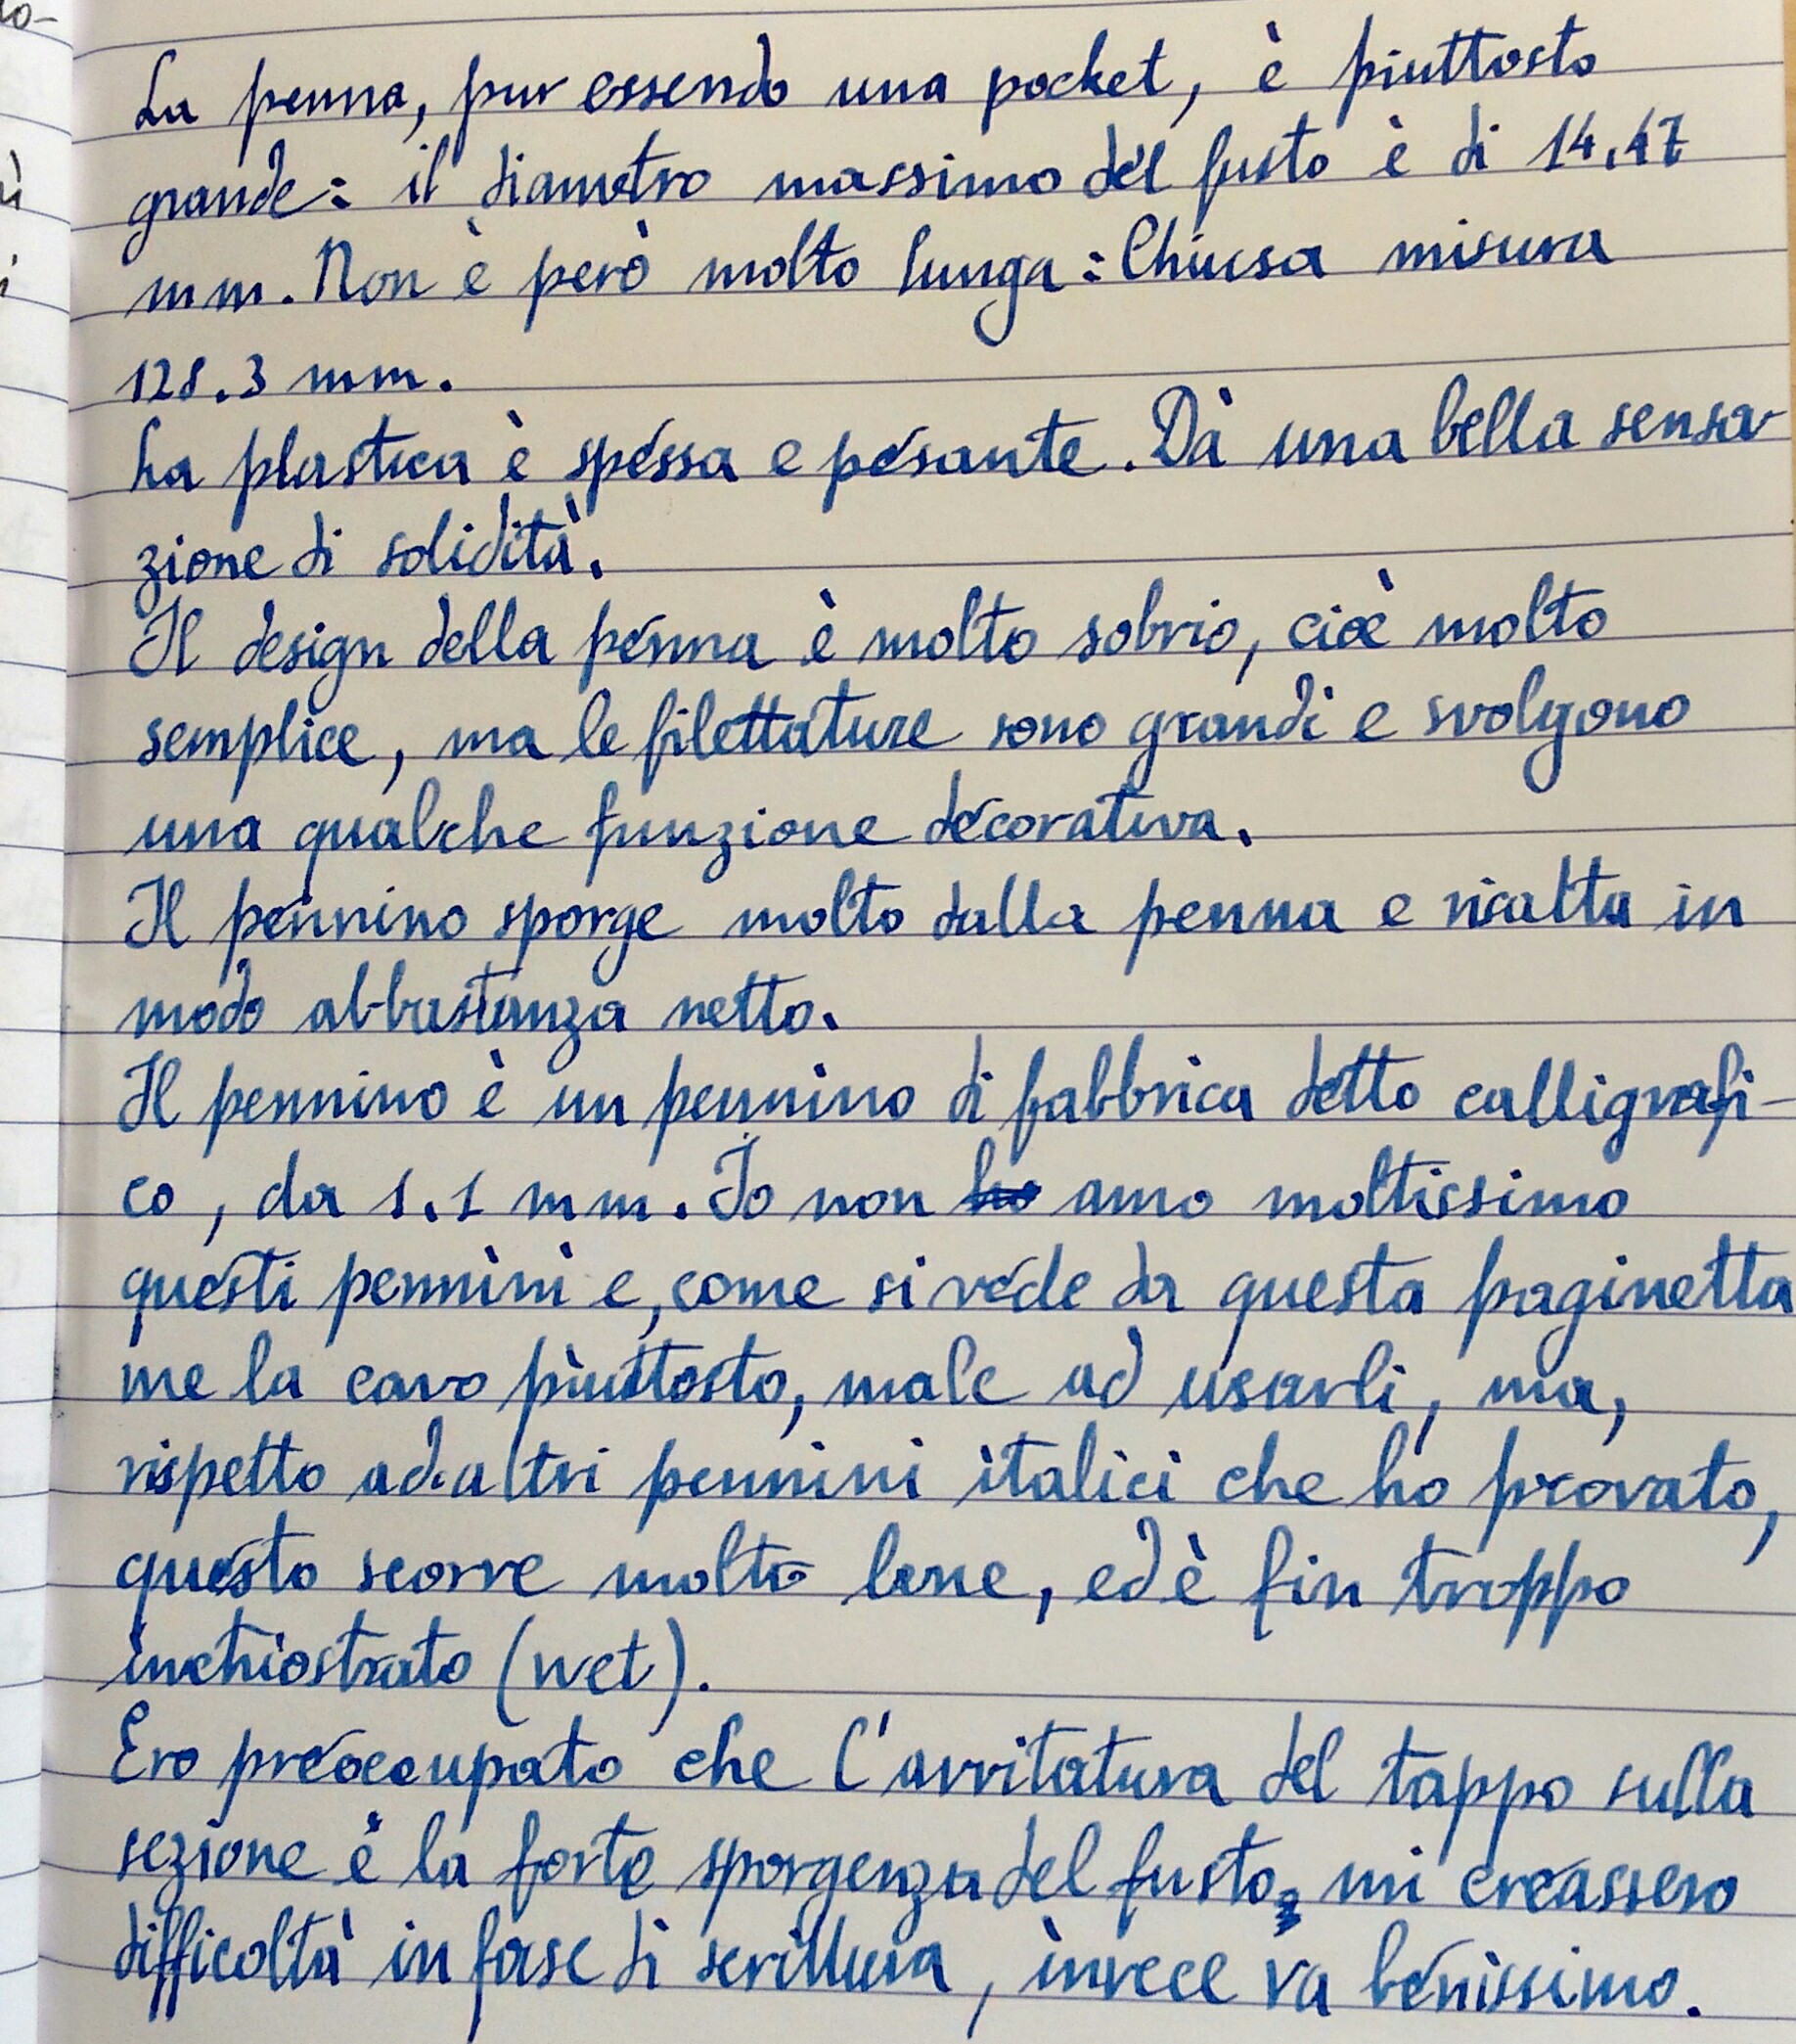 La penna, pur essendo una pocket, è piuttosto
grande: il diametro massimo del fusto è di 14.47
mm. Non è però molto lunga: Chiusa misura
128.3 mm.
La plastica è spessa e pesante. Dà una bella sensa-
zione di solidità.
Il design della penna è molto sobrio, cioè molto
semplice, ma le filettature sono grandi e svolgono
una qualche funzione decorativa.
Il pennino sporge molto dalla penna e risalta in
modo abbastanza netto.
Il pennino è un pennino di fabbrica detto calligrafi-
co, da 1.1 mm. Io non ho amo moltissimo
questi pennini e, come si vede da questa paginetta
me la cavo piuttosto, male ad usarli, ma,
rispetto ad altri pennini italici che ho provato,
questo scorre molto bene, ed è fin troppo
inchiostrato (wet).
Ero preoccupato che l'avvitatura del tappo sulla
sezione e la forte sporgenza del fusto, mi creassero
difficoltà in fase di scrittura, invece va benissimo.